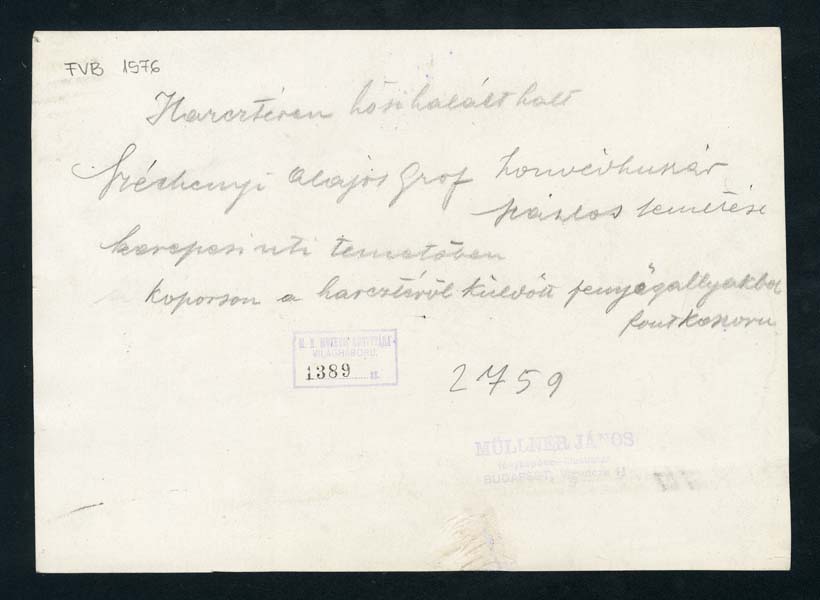 FVB 1976
Harcztéren hősi halált halt
Széchenyi Alajos Gróf honvédhuszár
zászlós temetése
kerepesi uti temetőben
Koporson a harcztéről küldött fenyőgallyakbol
font koszoru
M. N. MUZEUM KÖNYVTÁRA
VILÁGHÁBORU.
1389 sz.
2759
MÜLLNER JÁNOS
BUDAPEST,